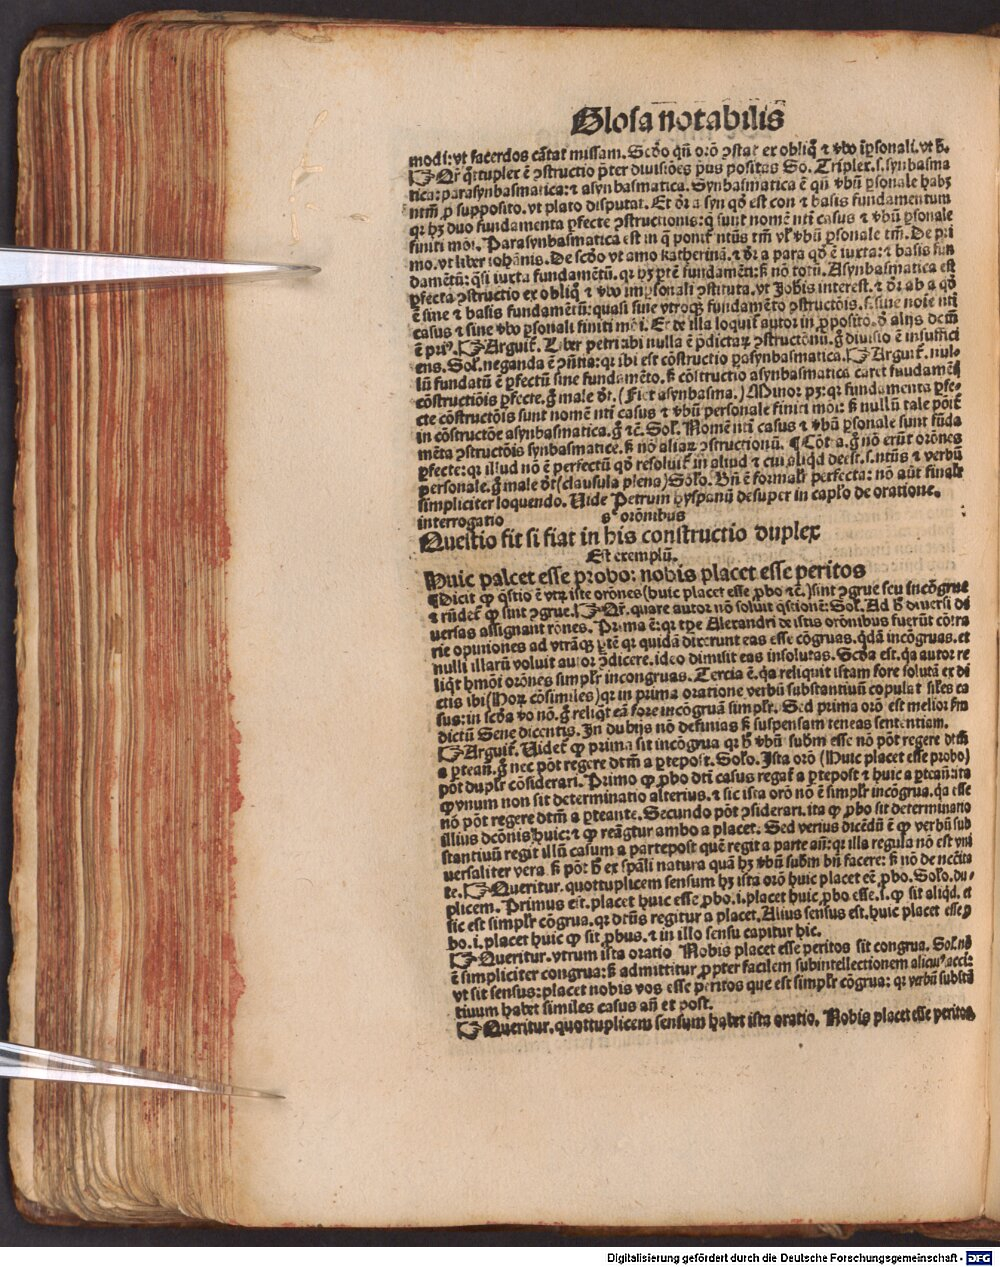 Glosa notabilis
modi: vt sacerdos cãtat missam. Scðo qñ orõ ↄstat ex obliq̃ ⁊ v̾bo ĩpsonali. vt h̃.
☞ Qr̃ q̃tuplex ẽ ↄstructio p̃ter diuisiões p̃us positas So. Triplex. s. synbasma
tica: parasynbasmatica: ⁊ asynbasmatica. Synbasmatica ẽ qñ v̾bũ ꝑsonale habꝫ
ntm̃ ꝓ supposito. vt plato disputat. Et dr̃ a syn qð est con ⁊ basis fundamentum
qꝛ hꝫ duo fundamenta ꝑfecte ↄstructionis: q̃ sunt nomẽ nti casus ⁊ v̾bũ ꝑsonale
finiti moi. Parasynbasmatica est in q̃ ponit̃ ntũs tm̃ vl̾ v̾bũ ꝑsonale tm̃. De pri
mo. vt liber iohãnis. De scðo vt amo katherinã. ⁊ dr̃ a para qð ẽ iuxta: ⁊ basis fun
damẽtũ: q̃si iuxta fundamẽtũ. qꝛ hꝫ ptẽ fundamẽti: sꝫ nõ totũ. Asynbasmatica est
ꝑfecta ↄstructio ex obliq̃ ⁊ v̾bo impsonali ↄstituta. vt Johis interest. ⁊ dr̃ ab a qð
ẽ sine ⁊ basis fundamẽtũ: quasi sine vtroqꝫ fundamẽto ↄstructõis. s. sine noie nti
casus ⁊ sine v̾bo ꝑsonali finiti mõi. Et de illa loquit̃ autor in ꝓposito. ð alijs dcm̃
ẽ priꝰ. ☞ Arguit̃. Liber petri ibi nulla ẽ p̃dictaꝝ ↄstructõnũ. g̃ diuisio ẽ insuffici
ens. Sol̾. neganda ẽ ↄñtia: qꝛ ibi est cõstructio pasynbasmatica. ☞ Arguit̃. nul-
lũ fundatũ ẽ ꝑfectũ sine fundamẽto. sꝫ cõstructio asynbasmatica caret fundamẽt̃
cõstructiõis ꝑfecte. g̃ male dr̃. (Fiet asynbasma.) Minor pꝫ: qꝛ fundamenta ꝑfe-
cte cõstructõis sunt nomẽ nti casus ⁊ v̾bũ personale finiti moi: sꝫ nullũ tale põit̃
in cõstructõe asynbasmatica. g̃ ⁊c̃. Sol̾. Nomẽ nti casus ⁊ v̾bũ ꝑsonale sunt fũda
mẽta ↄstructõis synbasmatice. sꝫ nõ aliaꝝ ↄstructionũ. ¶ Cõt̃a. g̃ nõ erũt orõnes
ꝑfecte: qꝛ illud nõ ẽ perfectũ qð resoluit̃ in aliud ⁊ cui aliqd deest. s. ntũs ⁊ verbũ
personale. g̃ male dr̃ (clausula plena) Solo. Bñ ẽ formalr̃ perfecta: nõ aũt finalr̃
simpliciter loquendo. Uide Petrum hyspanũ desuper in caplo de oratione.
interrogatio s. orõnibus
Questio fit si fiat in his constructio duplex
Est exemplũ.
Huic palcet esse probo: nobis placet esse peritos
¶ Dicit ꝙ q̃stio ẽ vtꝝ iste orones (huic placet esse ꝓbo ⁊c̃.) sint ↄgrue seu incõgrue
⁊ rñdet̃ ꝙ sint ↄgrue. ☞ Qr̃. quare autor nõ soluit q̃stionẽ: Sol̾. Ad h̃ diuersi di
uersas assignant rõnes. Prima ẽ: qꝛ tpe Alexandri de istis orõnibus fuerũt cõtra
rie opiniones ad vtrãqꝫ ptẽ qꝛ quidã dixerunt eas esse cõgruas. q̃dã incõgruas. et
nulli illarũ voluit autor ↄdicere. ideo dimisit eas insolutas. Scða est. qa autor re
liq̃t hmõi orõnes simplr̃ incongruas. Tercia ẽ. qa reliquit istam fore solutã ex di
ctis ibi (Hoꝝ cõsimiles) qꝛ in prima oratione verbũ substantiuũ copulat siles ca
sus: in scða vo nõ. g̃ reliq̃t eã fore incõgruã simplr̃. Sed prima orõ est melior p̃ra
dictũ Sene dicentis. In dubijs nõ definias sꝫ suspensam teneas sententiam.
☞ Arguit̃. Uidet̃ ꝙ prima sit incõgrua qꝛ h̃ v̾bũ subm̃ esse nõ põt regere dtm̃
a pteañ. g̃ nec põt regere dtm̃ a ptepost. Solo. Ista orõ (Huic placet esse probo)
põt duplr̃ cõsiderari. Primo ꝙ ꝓbo dti casus regat̃ a ptepost ⁊ huic a pteañ: ita
ꝙ vnum non sit determinatio alterius. ⁊ sic ista orõ nõ ẽ simplr̃ incõgrua. qa esse
nõ põt regere dtm̃ a pteante. Secundo põt ↄsiderari. ita ꝙ ꝓbo sit determinatio
illius dcõnis huic: ⁊ ꝙ reãgtur ambo a placet. Sed verius dicẽdũ ẽ ꝙ verbũ sub
stantiuũ regit illũ casum a partepost quẽ regit a parte añ: qꝛ illa regula nõ est vni
uersaliter vera. sꝫ põt h̃ ex spãli natura quã hꝫ v̾bũ subm̃ bñ facere: sꝫ nõ de necita
te. ☞ Queritur. quottuplicem sensum hꝫ ista orõ huic placet eẽ ꝓbo. Solo. du-
plicem. Primus est. placet huic esse ꝓbo. i. placet huic ꝓbo esse. s. ꝙ sit aliqd. et
sic est simplr̃ cõgrua. qꝛ dtũs regitur a placet. Alius sensus est. huic placet esse ꝓ
bo. i. placet huic ꝙ sit ꝓbus. ⁊ in illo sensu capitur hic.
☞ Queritur. vtrum ista oratio Nobis placet esse peritos sit congrua. Sol. nõ
ẽ simpliciter congrua: sꝫ admittitur ꝓpter facilem subintellectionem alicuiꝰ acci:
vt sit sensus: placet nobis vos esse peritos que est simplr̃ cõgrua: qꝛ verbũ substã
tiuum habet similes casus añ et post.
☞ Queritur. quottuplicem sensum habet ista oratio. Nobis placet esse peritos
Digitalisierung gefördert durch die Deutsche Forschungsgemeinschaft - DFG